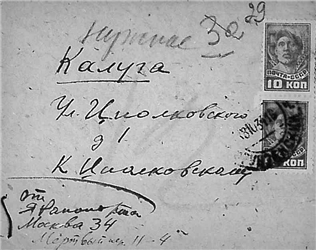 32
29
Калуга
Ул. Циолковского
д 1
К. Циолковскому
От
Я. Рапопорта
Москва 34
Мертвый пер. 11-4
ПОЧТА СССР
10 КОП
КОП